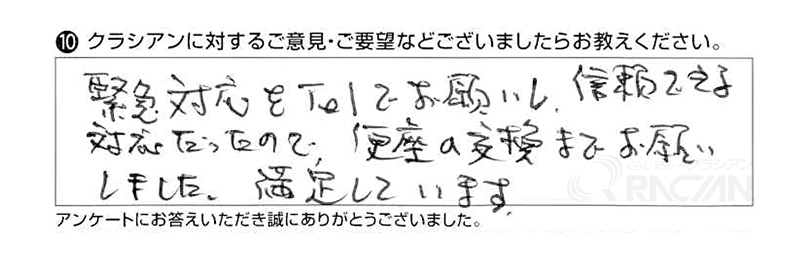 ⑩ クラシアンに対するご意見・ご要望などございましたらお教えください。
緊急対応をTelでお願いし、信頼できる
対応だったので、便座の交換までお願い
しました。満足しています。
くらしのクラシアン
QRACIAN
アンケートにお答えいただき誠にありがとうございました。